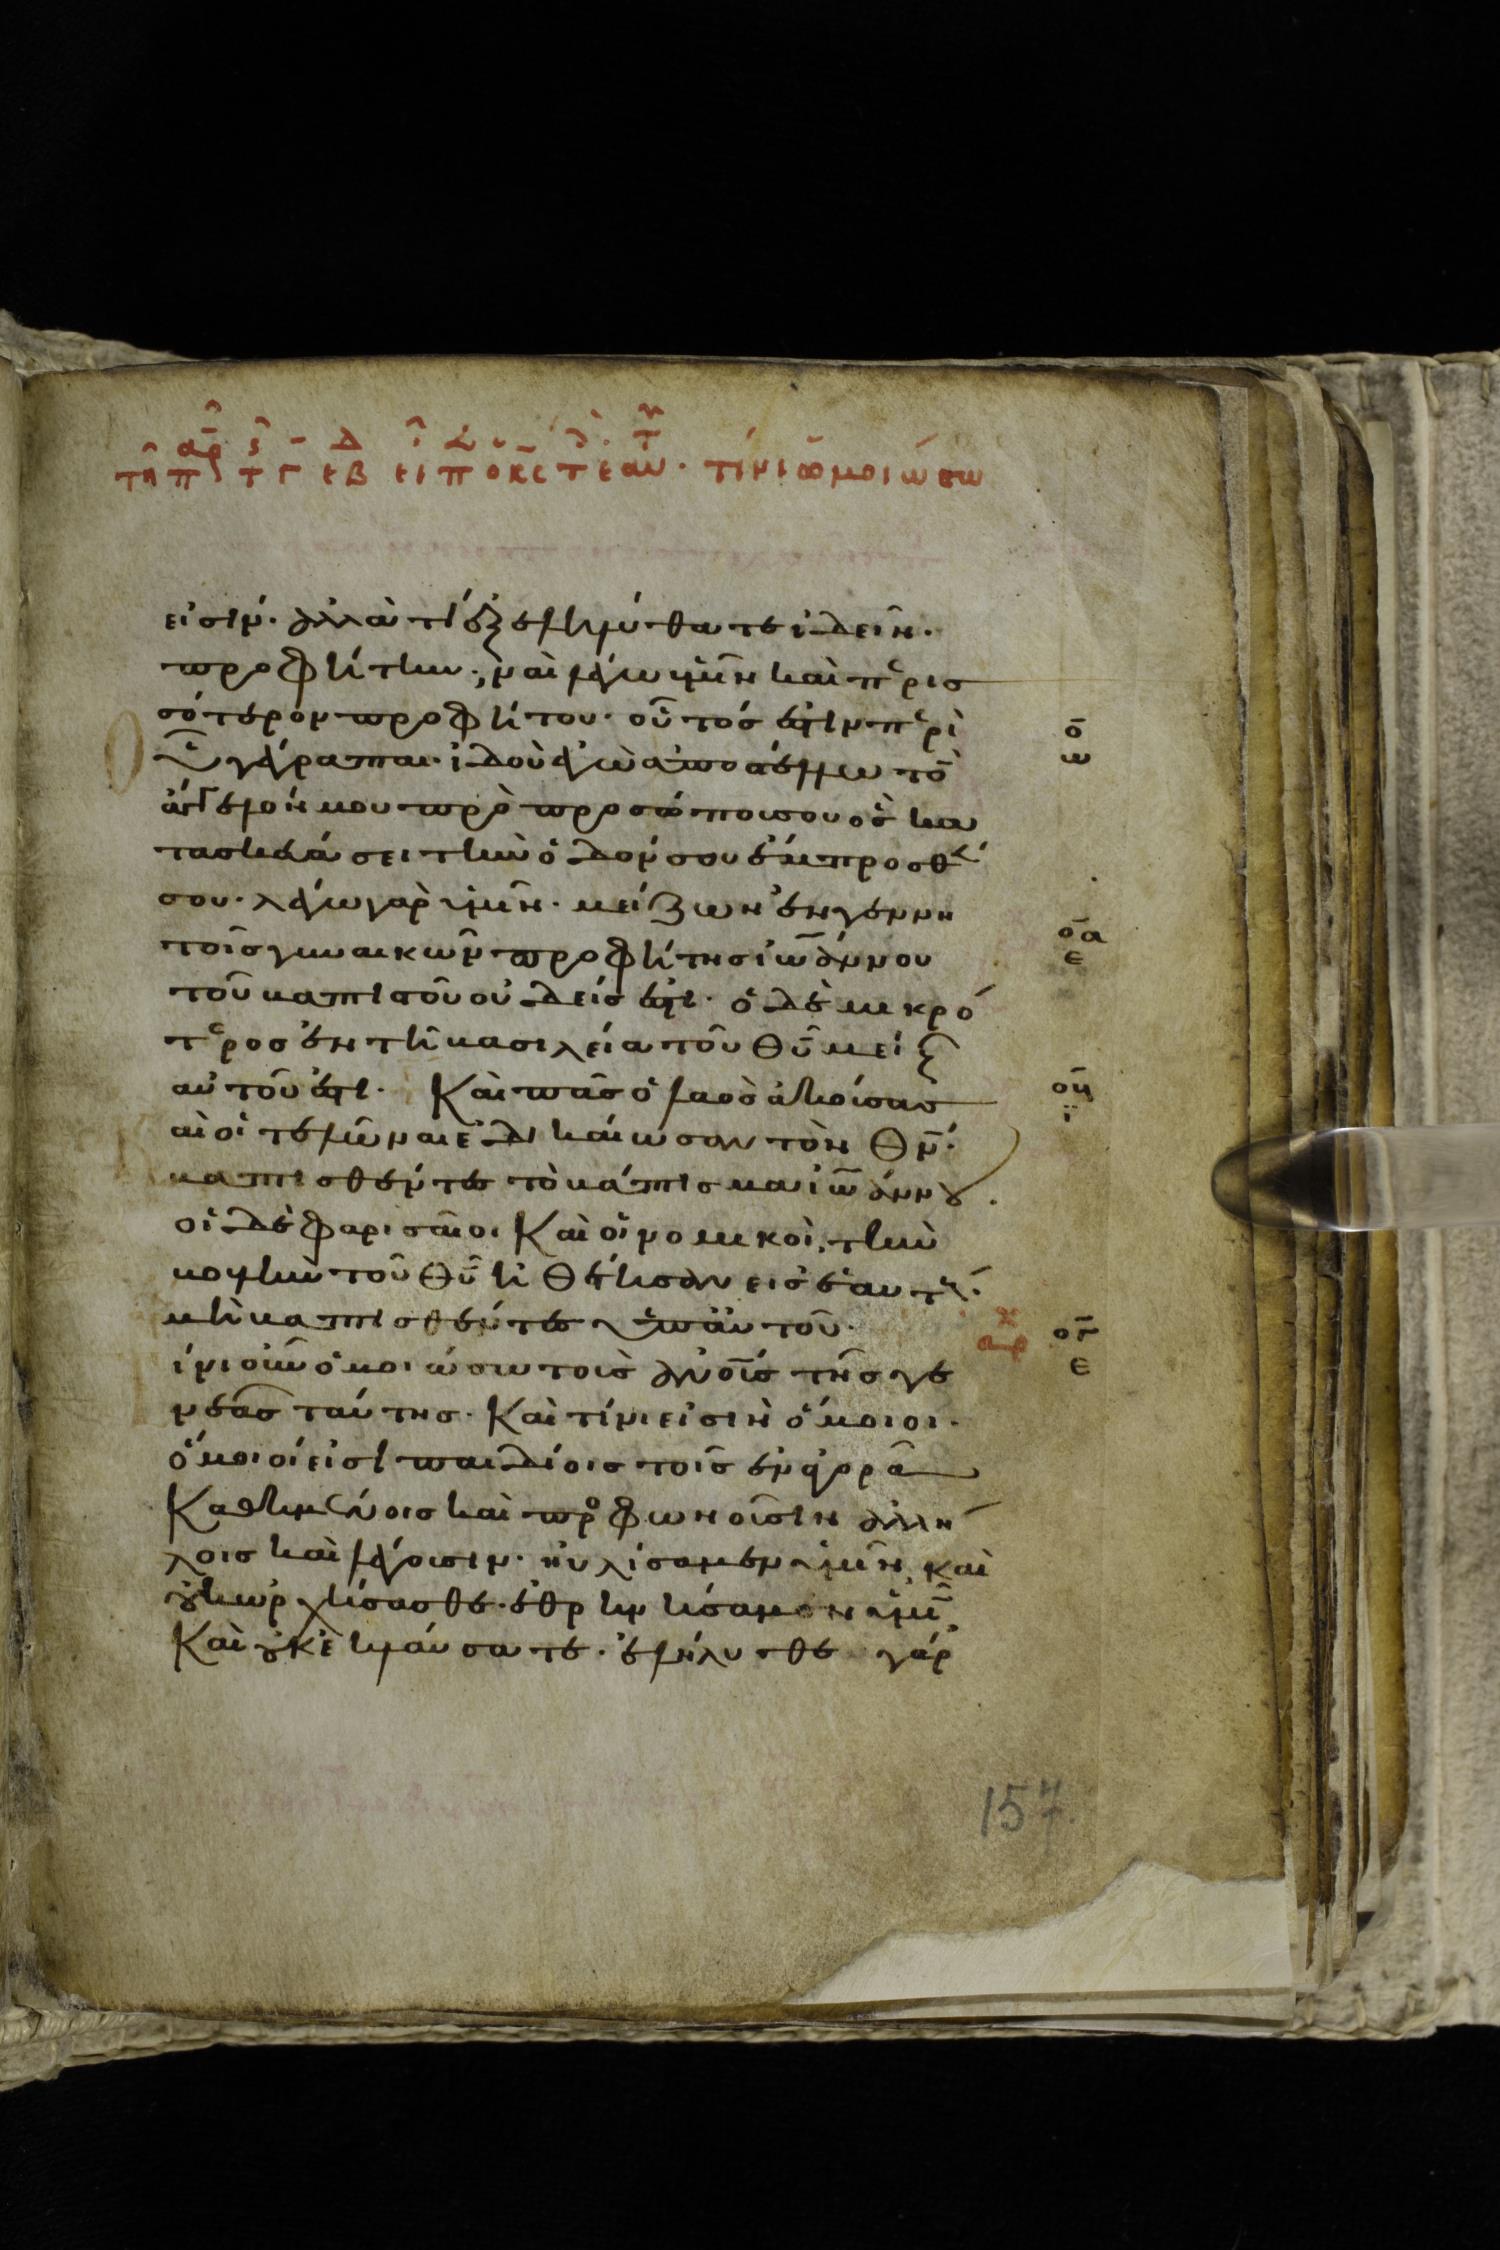 εἰσίν. ἀλλὰ τί ἐξεληλύθατε ἰδεῖν.
προφήτην; ναὶ λέγω ὑμῖν καὶ περισ
σότερον προφήτου. οὗτός ἐστιν περὶ
οὗ γέγραπται. ἰδοὺ ἐγὼ ἀποστέλλω τὸ
ἄγγελόν μου πρὸ προσώπου σου ὃς κα
τασκευάσει τὴν ὁδόν σου ἔμπροσθέ
σου. λέγω γὰρ ὑμῖν. μείζων ἐν γεννη
τοῖς γυναικῶν προφήτης ἰω̅άννου
τοῦ βαπτιστοῦ οὐδείς ἐστι. ὁ δὲ μικρό
τερος ἐν τῆ βασιλεία τοῦ θυ̅ μείζ
αὐτοῦ ἐστι. Καὶ πᾶς ὁ λαὸς ἀκούσας
αὶ οἱ τελῶναι ἐδικαίωσαν τὸν θν̅.
βαπτισθέντες τὸ βάπτισμα ἰω̅άννου.
οἱ δὲ φαρισαῖοι Καὶ οἱ νομικοὶ, τὴν
βουλὴν τοῦ θυ̅ ἠθέτησαν εἰς ἑαυτ
μὴ βαπτισθέντες ὑπ' αὐτοῦ.
ίνι οὖν ὁμοιώσω τοὺς ἀνο̅υς τῆς γε
νεᾶς ταύτης. Καὶ τίνι εἰσὶν ὅμοιοι.
ὅμοιοί εἰσι παιδίοις τοῖς ἐν ἀγορᾶ
Καθημένοις καὶ προσφωνοῦσιν ἀλλή
λοις καὶ λέγουσιν. ηὐλίσαμεν ὑμῖν, καὶ
οὐκ ὠρχήσασθε. ἐθρηνήσαμεν ὑμῖν,
Καὶ οὐκ ἐκλαύσατε. ἐλήλυθε γάρ
ο̅
ω
ο̅α
ε
ο̅β
ϊ
χ
αρ
ο̅γ
ε
157.